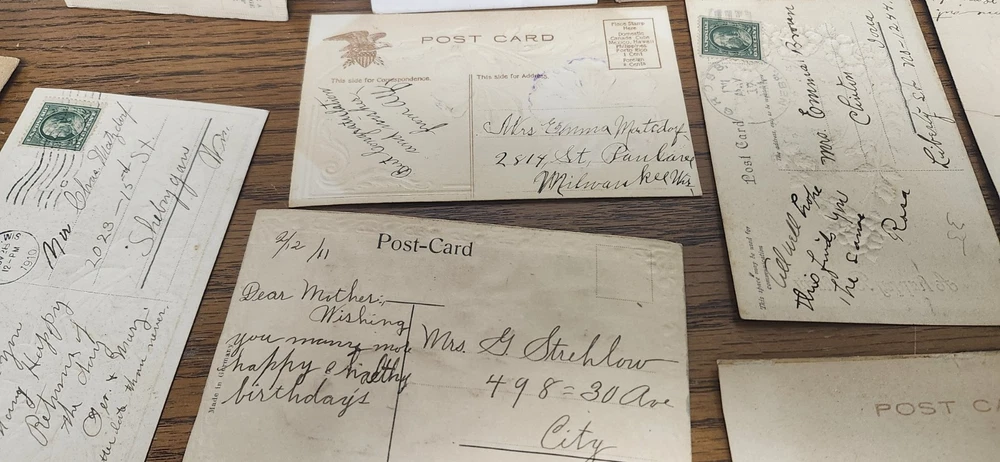 POST CARD
This side for Correspondence.
This side for Address.
Place Stamp
Here
Domestic
1 Cent
Foreign
2 Cents
Best Congratulations
and wishes
from all
Mrs Emma
2814, St, Paul ave
Milwaukee Wis
12-PM
1910
Mr Chas
2023 — 15th St.
Sheboygan
Wis.
you
Many Happy
Returns of
the day
Geo. & Mary.
late than never.
Post-Card
9/2/11
Dear Mother:,
Wishing
you many more
happy & healthy
birthdays
Made in Germany
Mrs. G Strehlow
498=30 Ave
City
Post Card
Mrs. Emma Brown
Clinton
Iowa
Liberty St No-1244.
This space may be used for
All Well hope
this finds you
the same
Rosa
POST CA